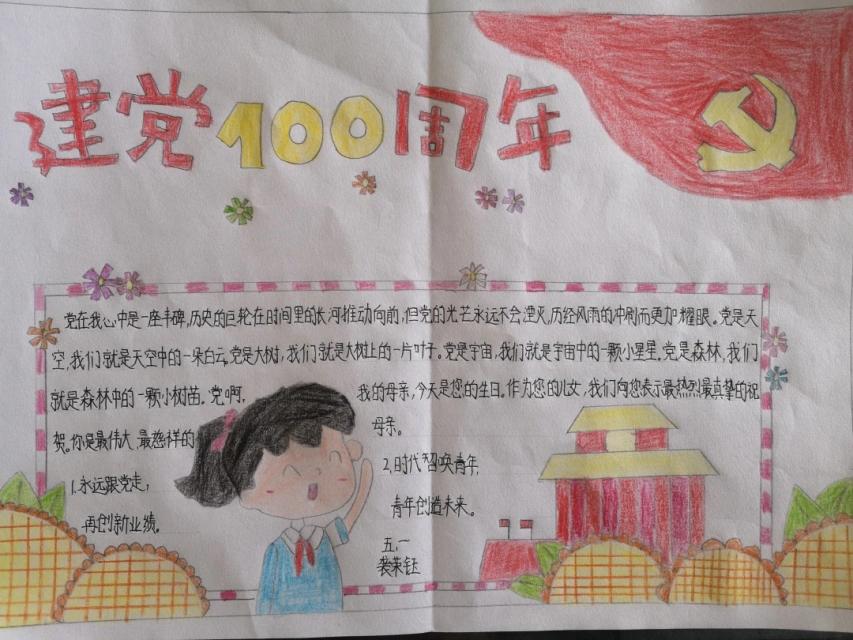 建党100周年
党在我心中是一座丰碑,历史的巨轮在时间里的长河推动向前,但党的光艺永远不会湮灭,历经风雨的冲刷而更加耀眼。党是天
空,我们就是天空中的一朵白云,党是大树,我们就是大树上的一片叶子。党是宇宙,我们就是宇宙中的一颗小星星,党是森林,我们
就是森林中的一颗小树苗。党啊,我的母亲,今天是您的生日。作为您的儿女,我们向您表示最热烈最真挚的祝
贺。你是最伟大,最慈祥的母亲。
1.永远跟党走,
再创新业绩。
2.时代召唤青年,
青年创造未来。
五.一